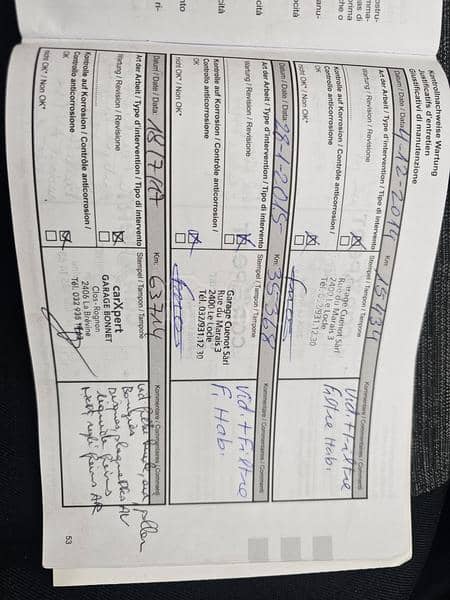 Kontrollnachweise Wartung
Justificatifs d'entretien
Giustificativi di manutenzione
Datum / Date / Data: 4-12-2014
Km:
Art der Arbeit / Type d'intervention / Tipo di intervento
Wartung / Revision / Revisione
Kontrolle auf Korrosion / Contrôle anticorrosion /
Controllo anticorrosione
OK
nicht OK* / Non OK*
Stempel / Tampon / Tampone
Garage Cuenot Sàrl
Rue du Marais 3
2400 Le Locle
Tél. 032/931.12.30
Kommentare / Commentaires / Commenti
Vid.+Filtre
Filtre Habi.
Datum / Date / Data:
Km: 35'368
Art der Arbeit / Type d'intervention / Tipo di intervento
Wartung / Revision / Revisione
Kontrolle auf Korrosion / Contrôle anticorrosion /
Controllo anticorrosione
OK
nicht OK* / Non OK*
Stempel / Tampon / Tampone
Garage Cuenot Sàrl
Rue du Marais 3
2400 Le Locle
Tél. 032/931.12.30
Kommentare / Commentaires / Commenti
Vid.+Filtre
F. Habi.
Datum / Date / Data: 18/7/17
Km: 63714
Art der Arbeit / Type d'intervention / Tipo di intervento
Wartung / Revision / Revisione
Kontrolle auf Korrosion / Contrôle anticorrosion /
Controllo anticorrosione
OK
nicht OK* / Non OK*
Stempel / Tampon / Tampone
carXpert
GARAGE BONNET
Clos-Rognon
2406 La Brévine
Tél. 032 935
Kommentare / Commentaires / Commenti
pollen
Bougies
Disques, plaquettes AV
liquide freins
freins AR
53